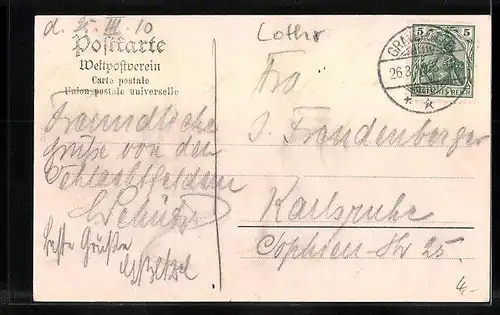 d. 25. III. 10
Postkarte
Weltpostverein
Carte postale
Union postale universelle
Lothr
5 5
GRA
26.3
DEUTSCHES REICH
Freundliche
Grüße von den
Schlachtfeldern
beste Grüße
J. Freudenberger
Karlsruhe
Sophien-Str 25.
4,-